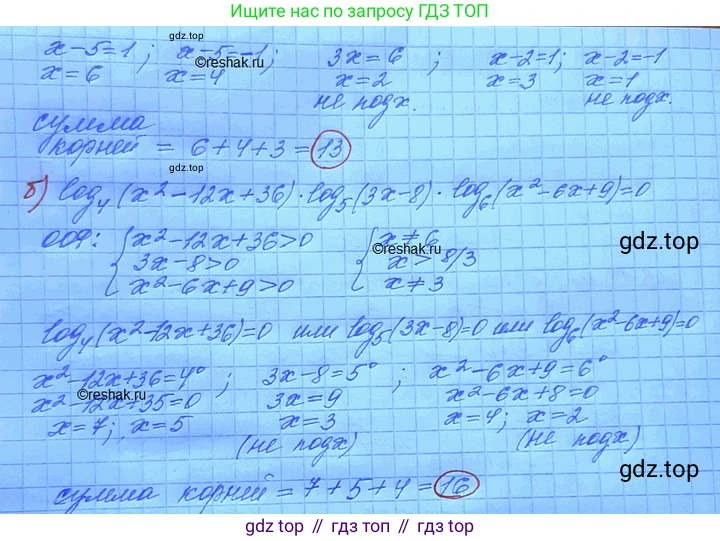 Ищите нас по запросу ГДЗ ТОП
gdz.top
x-5=1; x-5=-1; 3x=6; x-2=1; x-2=-1
©reshak.ru
x=6 x=4 x=2 x=3 x=1
не подх. не подх.
сумма
корней = 6+4+3=13
gdz.top
б) log₄(x²-12x+36)·log₅(3x-8)·log₆(x²-6x+9)=0
ООФ: { x²-12x+36>0 { x≠6
3x-8>0 x>8/3
x²-6x+9>0 x≠3
©reshak.ru
gdz.top
log₄(x²-12x+36)=0 или log₅(3x-8)=0 или log₆(x²-6x+9)=0
x²-12x+36=4⁰; 3x-8=5⁰; x²-6x+9=6⁰
©reshak.ru
x²-12x+35=0 3x=9 x²-6x+8=0
x=7; x=5 x=3 x=4; x=2
(не подх) (не подх)
gdz.top
сумма корней = 7+5+4=16
gdz.top // гдз топ // gdz top